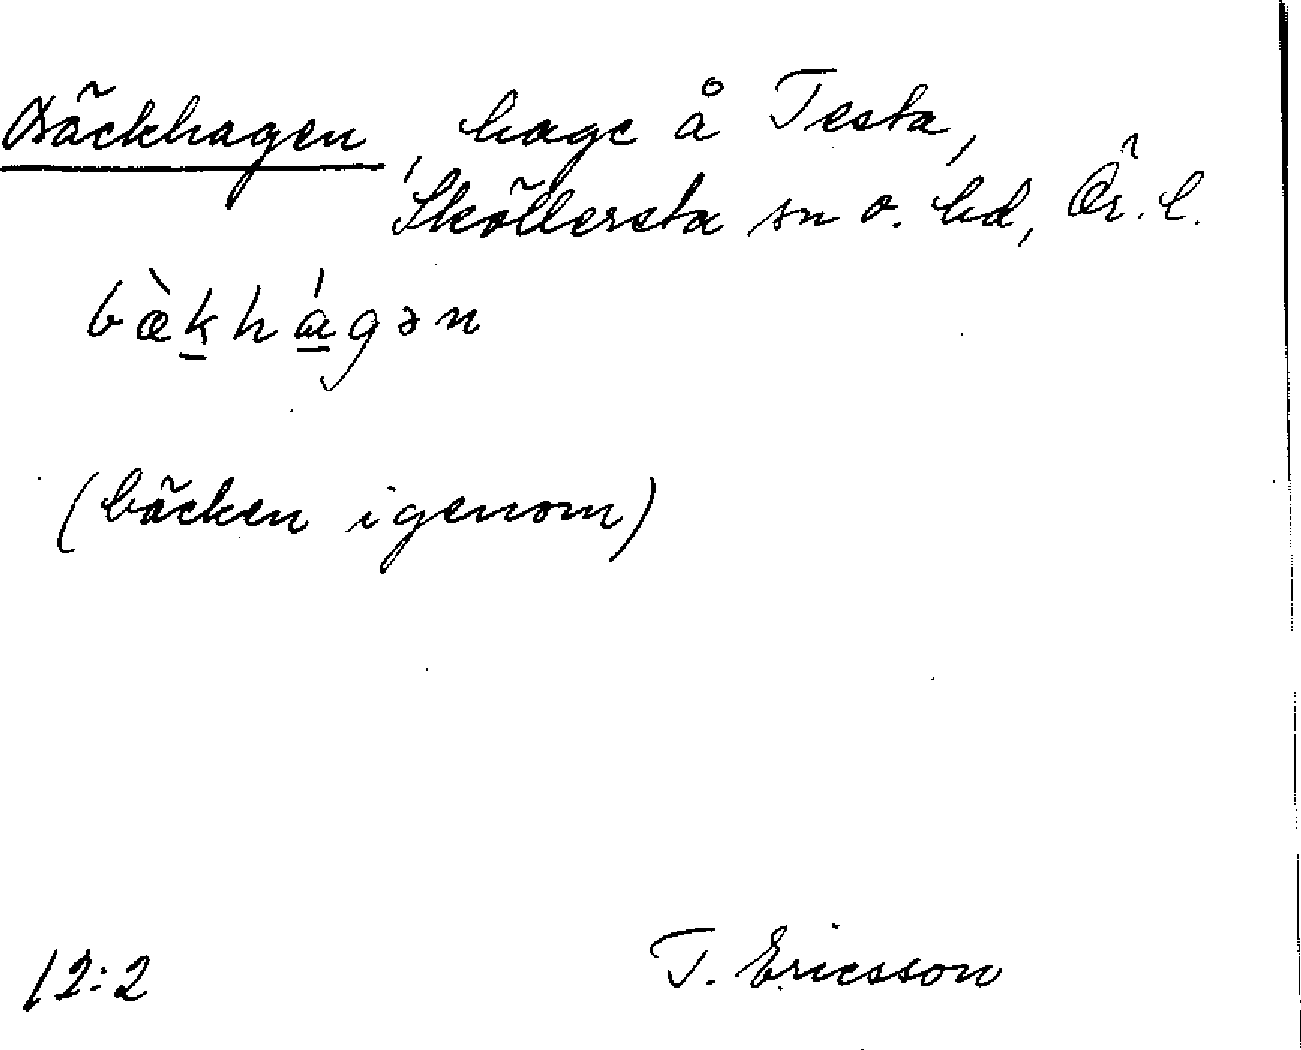 Bäckhagen, hage å Testa,
Sköllersta sn o. hd, Ör. l.
bæ̀k̲há̲gən
(bäcken igenom)
12:2 T. Ericsson